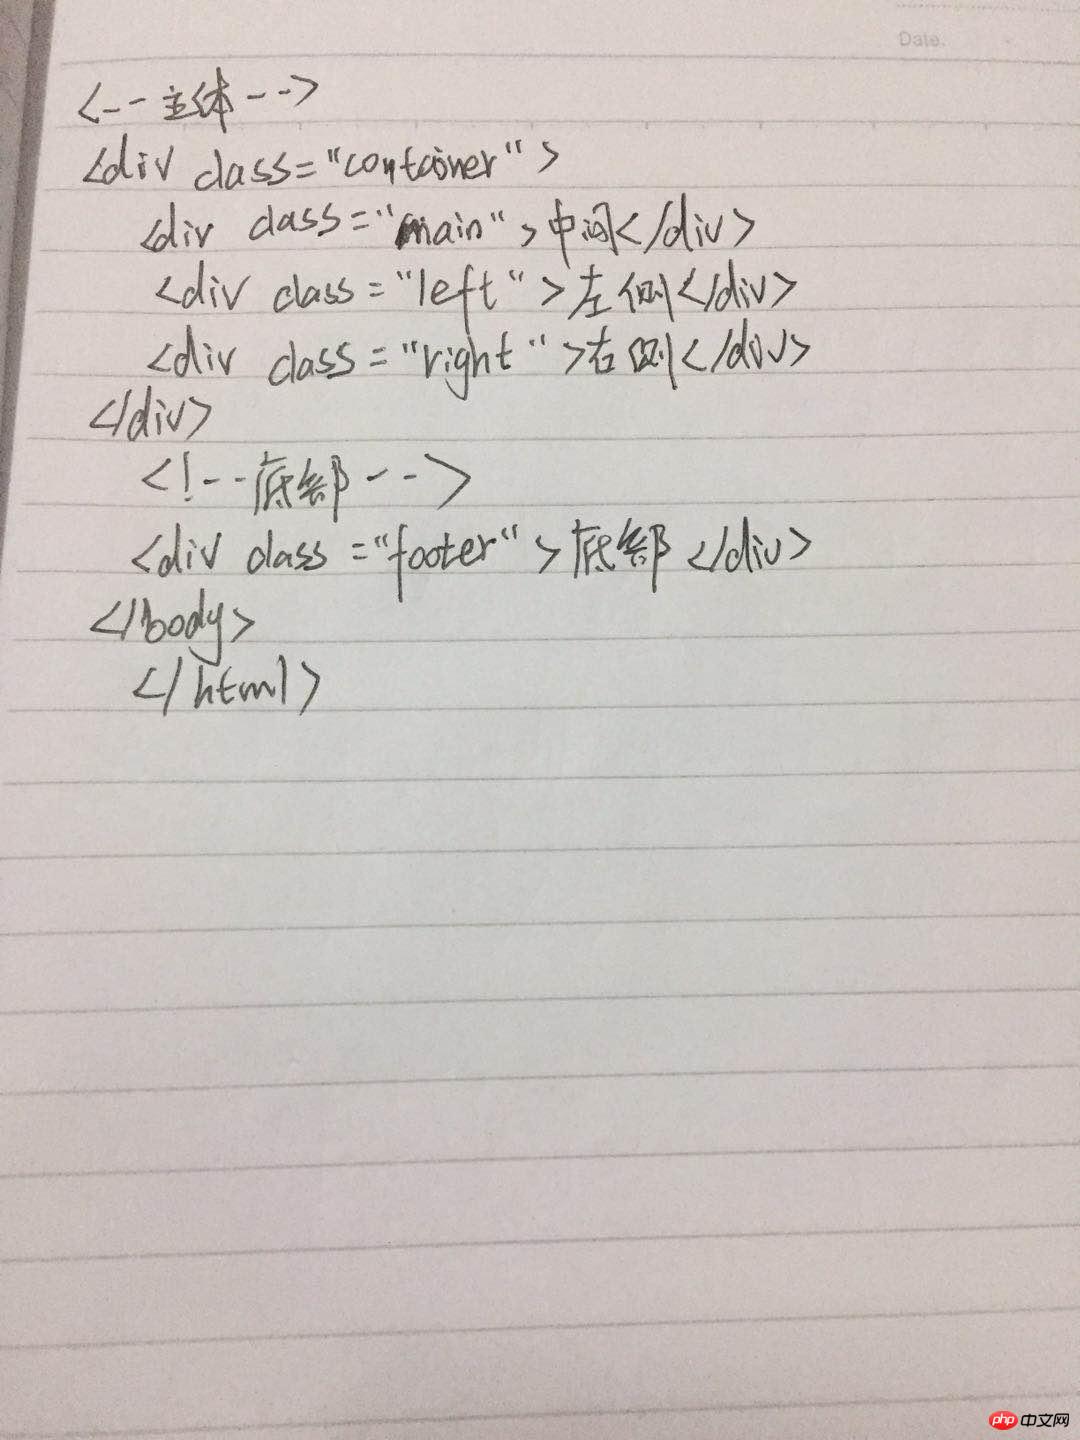 Date.
<-- 主体 -->
<div class="container">
<div class="main">中间</div>
<div class="left">左侧</div>
<div class="right">右侧</div>
</div>
<!-- 底部 -->
<div class="footer">底部</div>
</body>
</html>
php 中文网